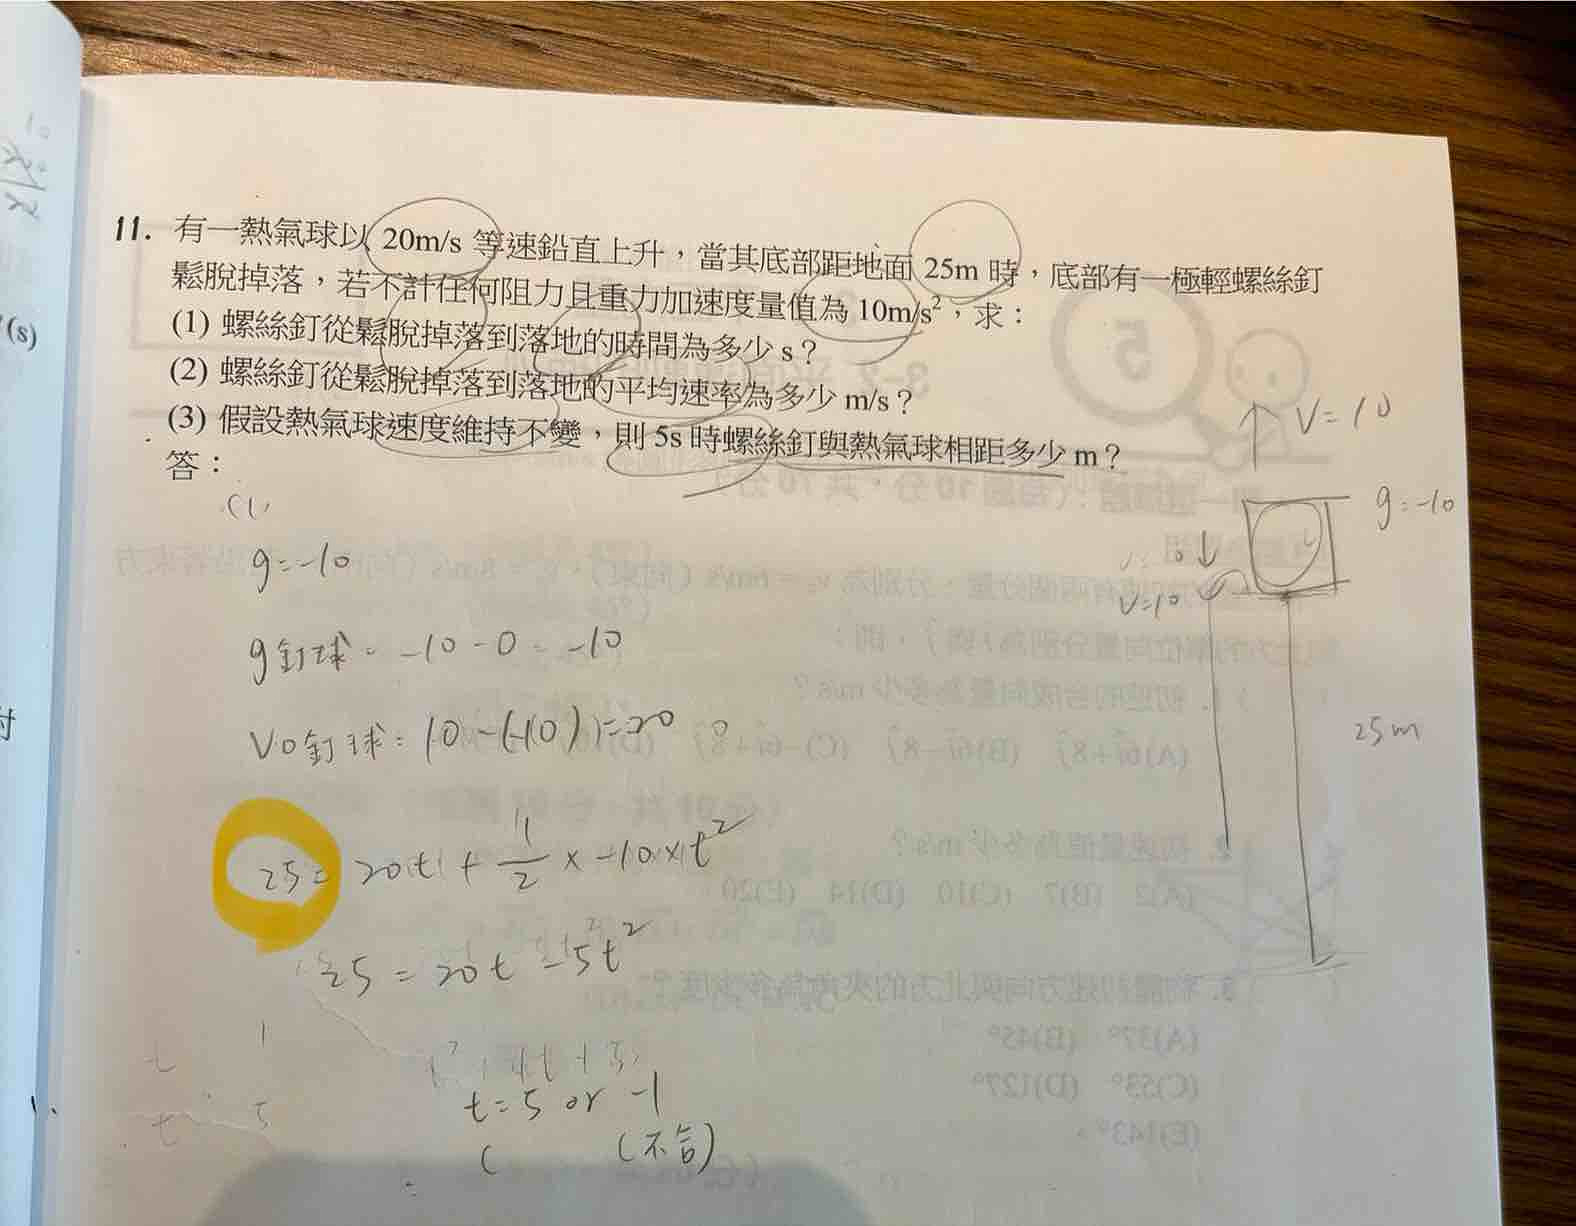 11. 有一熱氣球以 20m/s 等速鉛直上升，當其底部距地面 25m 時，底部有一極輕螺絲釘
鬆脫掉落，若不計任何阻力且重力加速度量值為 10m/s²，求：
(1) 螺絲釘從鬆脫掉落到落地的時間為多少 s？
(2) 螺絲釘從鬆脫掉落到落地的平均速率為多少 m/s？
(3) 假設熱氣球速度維持不變，則 5s 時螺絲釘與熱氣球相距多少 m？
答：
(s)
V=10
g=-10
V=10
25m
(1)
g=-10
g釘球=-10-0=-10
V0釘球=10-(-10)=20
25=20t+1/2×-10×t²
25=20t-5t²
t 1
t 5
t=5 or -1
(不合)